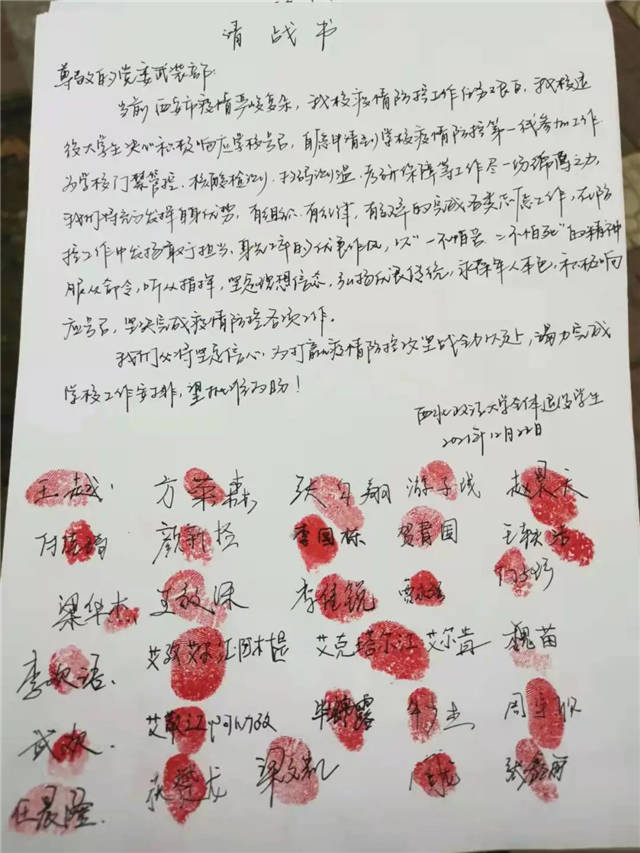 请战书
尊敬的党委武装部:
当前西安市疫情严峻复杂,我校疫情防控工作任务艰巨,我校退
役大学生决心积极响应学校号召,自愿申请到学校疫情防控第一线参加工作
为学校门禁管控、核酸检测、扫码测温、后勤保障等工作尽一份绵薄之力,
我们将充分发挥自身优势,有组织、有纪律、有效率的完成各类志愿工作,在防
控工作中发扬敢于担当、身先士卒的优良作风,以"一不怕苦、二不怕死"的精神
服从命令,听从指挥,坚定理想信念,弘扬优良传统,永葆军人本色,积极响
应号召,坚决完成疫情防控各项工作。
我们必将坚定信心,为打赢疫情防控攻坚战全力以赴,竭力完成
学校工作安排,望批准为盼!
西北政法大学全体退役学生
2021年12月22日
王越 方荣森 张 翔 游子成 赵昊天
付 琦 颜新格 李国栋 贺君国 王轶
梁华杰 王毅保 李佳锐
李欢语 艾孜艾江阿木提 艾克拜尔江 艾尔肯 魏苗
武欢 毕婷露 牛杰 周
任晨隆 张楚龙 梁文凯 龙 张鑫丽